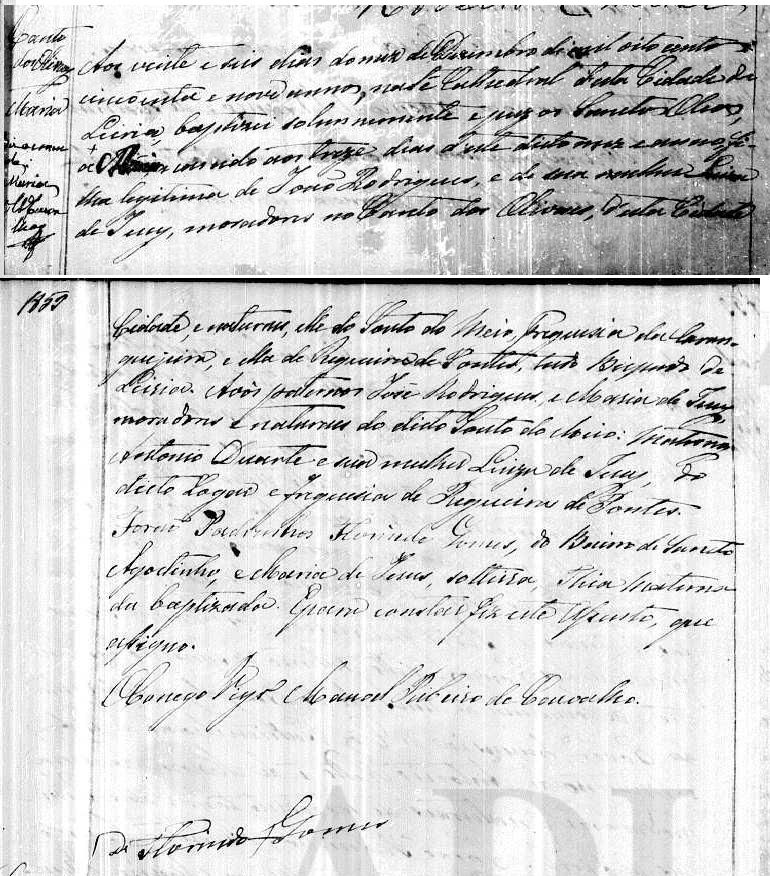 Canto
dos Olivaes
Maria
Aos vente e seis dias do mez de Dezembro de mil oito cento
cincoenta e nove annos, neste Cathedral desta Cidade de
Leiria, baptizei solemnemente e puz os Sanctos Oleos,
a Maria nascida aos treze dias deste dicto mez e anno, fi-
lha legitima de João Rodrigues, e de sua mulher Luiza
de Jesus, moradores no Canto dos Olivaes, desta Cidade
1859
Cidade, e naturaes, elle do Souto do Meio, freguesia da Caran-
guejeira, e ella de Regueira de Pontes, tudo Bispado de
Leiria. Avós paternos José Rodrigues, e Maria de Jesus,
moradores e naturaes do dicto Souto do Meio: Maternos
Antonio Duarte e sua mulher Luiza de Jesus, do
dicto Logar e freguesia de Regueira de Pontes.
Forão Padrinhos Florindo Gomes, do Bairro de Sancto
Agostinho, e Maria de Jesus, solteira, Thia Materna
da baptizada. E para constar fiz este Assento, que
assigno.
O Conego Vigrº Manoel Ribeiro de Carvalho.
De Florindo Gomes
ADL